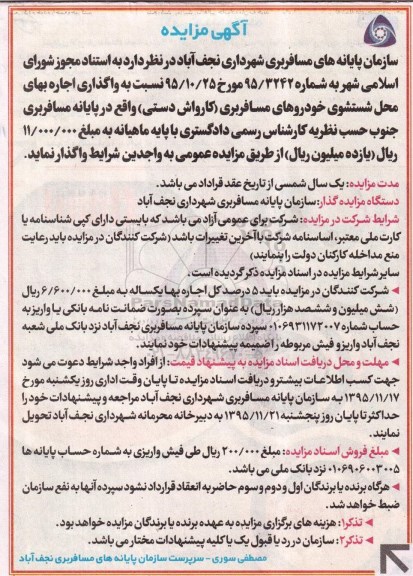 آگهی مزایده
سازمان پایانه های مسافربری شهرداری نجف آباد در نظر دارد به استناد مجوز شورای
اسلامی شهر به شماره ۹۵/۳۲۴۲ مورخ ۹۵/۱۰/۲۵ نسبت به واگذاری اجاره بهای
محل شستشوی خودروهای مسافربری (کارواش دستی) واقع در پایانه مسافربری
جنوب حسب نظریه کارشناس رسمی دادگستری با پایه ماهیانه به مبلغ ۱۱/۰۰۰/۰۰۰
ریال (یازده میلیون ریال) از طریق مزایده عمومی به واجدین شرایط واگذار نماید.
مدت مزایده: یک سال شمسی از تاریخ عقد قراداد می باشد.
دستگاه مزایده گذار: سازمان پایانه مسافربری شهرداری نجف آباد
شرایط شرکت در مزایده: شرکت برای عمومی آزاد می باشد که بایستی دارای کپی شناسنامه یا
کارت ملی معتبر، اساسنامه شرکت با آخرین تغییرات باشد (شرکت کنندگان در مزایده باید رعایت
منع مداخله کارکنان دولت را بنمایند)
سایر شرایط مزایده در اسناد مزایده ذکر گردیده است.
◄ شرکت کنندگان در مزایده باید ۵ درصد کل اجاره بها یکساله به مبلغ ۶/۶۰۰/۰۰۰ ریال
(شش میلیون و ششصد هزار ریال) به عنوان سپرده بصورت ضمانت نامه بانکی یا واریز به
حساب شماره ۰۱۰۶۹۳۱۱۷۲۰۰۷ سپرده سازمان پایانه مسافربری نجف آباد نزد بانک ملی شعبه
نجف آباد واریز و فیش مربوطه را ضمیمه پیشنهادات خود نمایند.
◄ مهلت و محل دریافت اسناد مزایده به پیشنهاد قیمت: از افراد واجد شرایط دعوت می شود
جهت کسب اطلاعات بیشتر و دریافت اسناد مزایده تا پایان وقت اداری روز یکشنبه مورخ
۱۳۹۵/۱۱/۱۷ به سازمان پایانه مسافربری شهرداری نجف آباد مراجعه و پیشنهادات خود را
حداکثر تا پایان روز پنجشنبه ۱۳۹۵/۱۱/۲۱ به دبیرخانه محرمانه شهرداری نجف آباد تحویل
نمایند.
◄ مبلغ فروش اسناد مزایده: مبلغ ۲۰۰/۰۰۰ ریال طی فیش واریزی به شماره حساب پایانه ها
۰۱۰۶۹۰۶۰۰۳۰۰۵ نزد بانک ملی می باشد.
◄ هرگاه برنده یا برندگان اول و دوم و سوم حاضر به انعقاد قرارداد نشود سپرده آنها به نفع سازمان
ضبط خواهد شد.
◄ تذکر۱: هزینه های برگزاری مزایده به عهده برنده یا برندگان مزایده خواهد بود.
◄ تذکر۲: سازمان در رد یا قبول یک یا کلیه پیشنهادات مختار می باشد.
مصطفی سوری - سرپرست سازمان پایانه های مسافربری نجف آباد